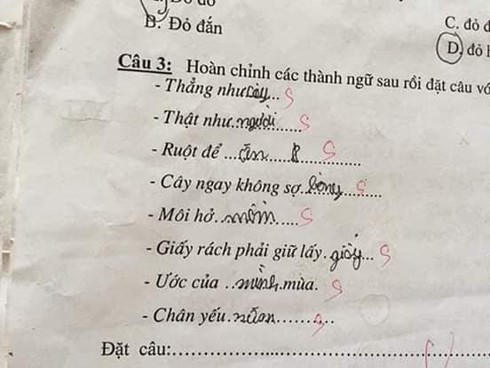 B. Đỏ đắn
C. đỏ đ
D. đỏ
Câu 3: Hoàn chỉnh các thành ngữ sau rồi đặt câu vớ
- Thẳng như cây... S
- Thật như người...... S
- Ruột để ...ăn......... S
- Cây ngay không sợ ...... S
- Môi hở. mồm..... S
- Giấy rách phải giữ lấy. giấy... S
- Ước của ..mình.mùa. S
- Chân yếu.............. S
Đặt câu: